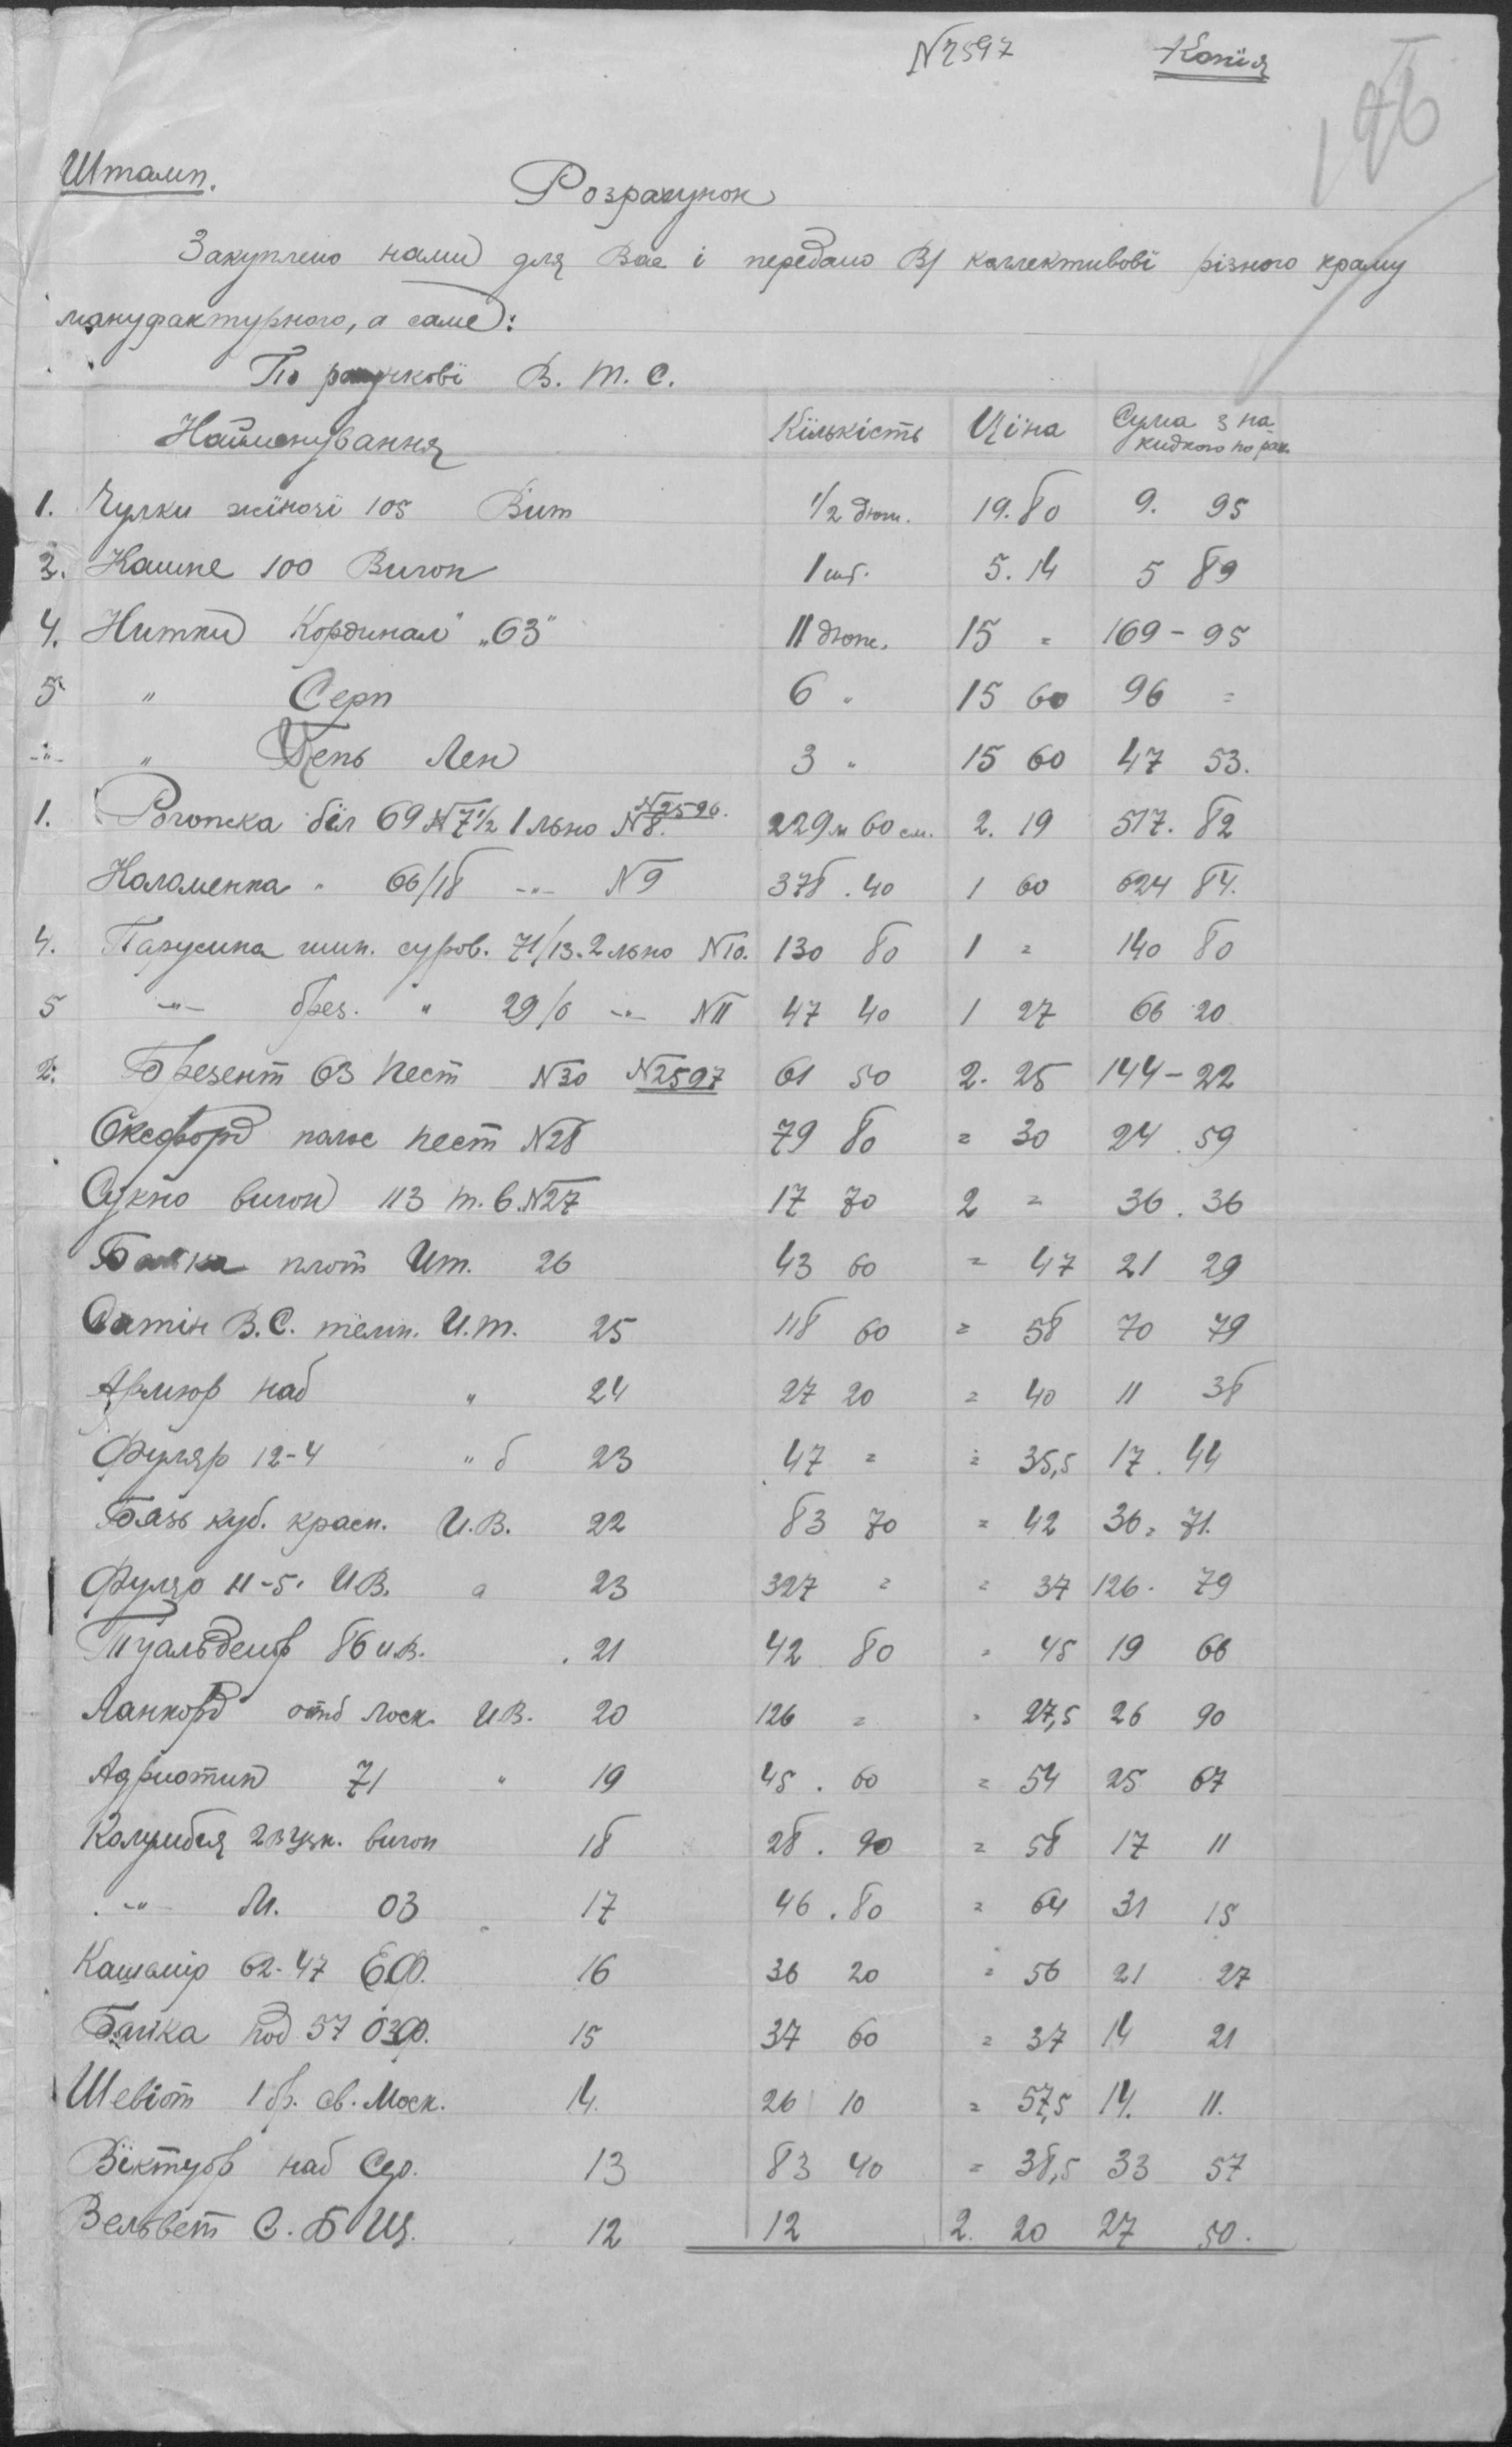 № 2597 Копія
196
Штамп.
Розрахунок
Закуплено нами для Вас і передано В/ каллективові різного краму
мануфактурного, а саме:
По рахункові В. Т. С.
Найменування Кількість Ціна Сума з на-
кидкою по рах.
1. Чулки жіночі 105 Вит 1/2 дюж. 19.80 9. 95
2. Кашне 100 Вигон 1 шт. 5.14 5 89
4. Нитки Кординал" „63" 11 дюж. 15 = 169 - 95
5 " Серп 6 " 15 60 96 =
-"- " Цепь Лен 3 " 15 60 47 53.
№2596.
1. Рогожка біл 69 №7 1/2 1 льно №8. 229 м 60 см. 2. 19 517. 82
Коломенка " 66/18 -"- №9 378 . 40 1 60 624 84.
4. Парусина шин. суров. 71/13. 2 льно №10. 130 80 1 = 140 80
5 -"- брез. " 29/6 -"- №11 47 40 1 27 66 20
2. Брезент 63 пест №30 №2597 61 50 2. 25 144 - 22
Оксфорд палос пест №28 79 80 = 30 24 . 59
Сукно вигон 113 т. в. №27 17 70 2 = 36 . 36
Байка плот Ит. 26 43 60 = 47 21 29
Сатін В.С. темн. И.т. 25 118 60 = 58 70 79
Армюр наб " 24 27 20 = 40 11 38
Фуляр 12-4 " б 23 47 = = 35,5 17 . 44
Бязь куб. красн. И.В. 22 83 70 = 42 36 = 71.
Фуляр 11-5. И.В. а 23 327 = = 37 126 . 79
Туальденор 86 И.В. 21 42 80 = 45 19 66
Ланкорд отб Моск. И.В. 20 126 = = 27,5 26 90
Адриотин 71 " 19 45 . 60 = 54 25 67
Колумбия 23 узк. вигон 18 28 . 90 = 58 17 11
-"- М. 03 17 46 . 80 = 64 31 15
Кашемір 62-47 Е.Ф. 16 36 20 = 56 21 27
Байка под 57 ОЗФ. 15 37 60 = 37 14 21
Шевіот 1 бр. св. Моск. 14. 26 10 = 57,5 14. 11.
Віктуар наб Сер. 13 83 40 = 38,5 33 57
Вельвет С. Б Щ. 12 12 2. 20 27 50.